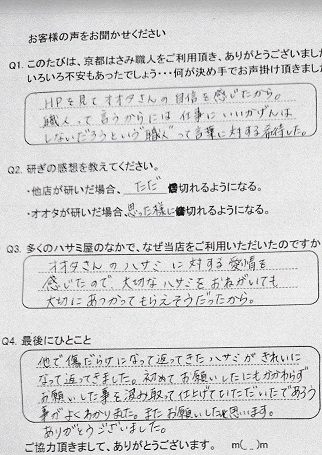 お客様の声をお聞かせください
Q1. このたびは、京都はさみ職人をご利用頂き、ありがとうございまし
いろいろ不安もあったでしょう・・・何が決め手でお声掛け頂きまし
HPを見てオオタさんの自信を感じたから。
職人って言うからには仕事にいいかげんは
しないだろうという"職人"って言葉に対する期待した。
Q2. 研ぎの感想を教えてください。
・他店が研いだ場合、ただ 切れるようになる。
・オオタが研いだ場合、思った様に 切れるようになる。
Q3. 多くのハサミ屋のなかで、なぜ当店をご利用いただいたのですか
オオタさんのハサミに対する愛情を
感じたので、大切なハサミをおねがいても
大切にあつかってもらえそうだったから。
Q4. 最後にひとこと
他で傷だらけになって返ってきたハサミがきれいに
なって返ってきました。初めてお願いしたにもかかわらず
お願いした事を汲み取って仕上げていただいたであろう
事がよくわかりました。またお願いしたく思います。
ありがとうございました。
ご協力頂きまして、ありがとうございます。 m(_ _)m